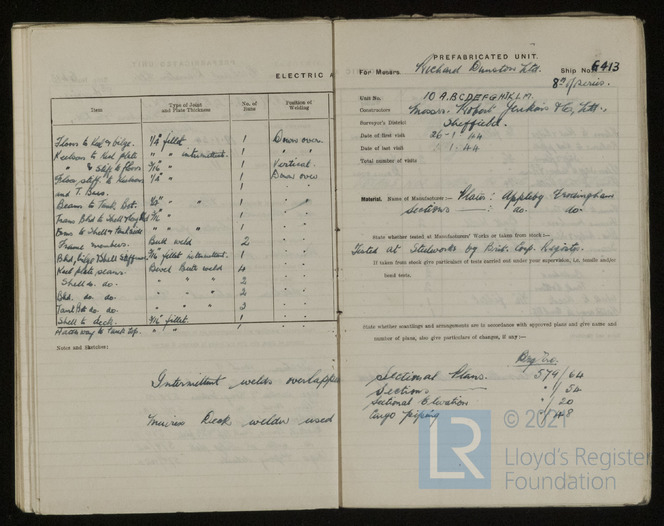 ELECTRIC A
Item
Type of Joint and Plate Thickness
No. of Runs
Position of Welding
Floors to keel & bilge. 1/4" fillet 1 Down over.
Keelson to keel plate " " intermittent. 1 "
" & stiff to floors 3/16" " 1 Vertical.
Floor stiff. to keelsons 1/4" " 1 Down over
and T. Bars. 1
Beams to Tank " " 1
Trans Bhd to Shell & 1
to Shell & " " " 1
Frame members. Butt weld 2
Bhd, bilge & Shell Stiffeners 3/16" fillet intermittent. 1
Keel plate, seams. Bevel Butt weld 4
Shell do. do. " " " 2
Bhd. do. do. " " " 2
Tank do. do. " " " 3
Shell to deck. 3/16" fillet. 1
to Tank top. " " 1
Notes and Sketches:
Intermittent welds overlapped
Deck welder used
PREFABRICATED UNIT.
For Messrs Richard Dunston Ltd. Ship No. 6413
8th of series.
Unit No. 10 A.B.C.D.E.F.G.H.K.L.M.
Constructors Messrs. Robert Jenkins & Co., Ltd.,
Surveyor's District Sheffield.
Date of first visit 26-1-44
Date of last visit 2-1-44
Total number of visits
Material, Name of Manufacturer:— Plates: Appleby Frodingham
Sections — do. do.
State whether tested at Manufacturers' Works or taken from stock:—
Tested at Steelworks by Brit. Corp. Register.
If taken from stock give particulars of tests carried out under your supervision, i.e., tensile and/or
bend tests.
State whether scantlings and arrangements are in accordance with approved plans and give name and
number of plans, also give particulars of changes, if any:—
Drg. No.
Sectional Plans. 574/64
Sections — " / 54
Sectional Elevation " / 20
Cargo piping " / 48
© 2021
LR
Lloyd's Register
Foundation